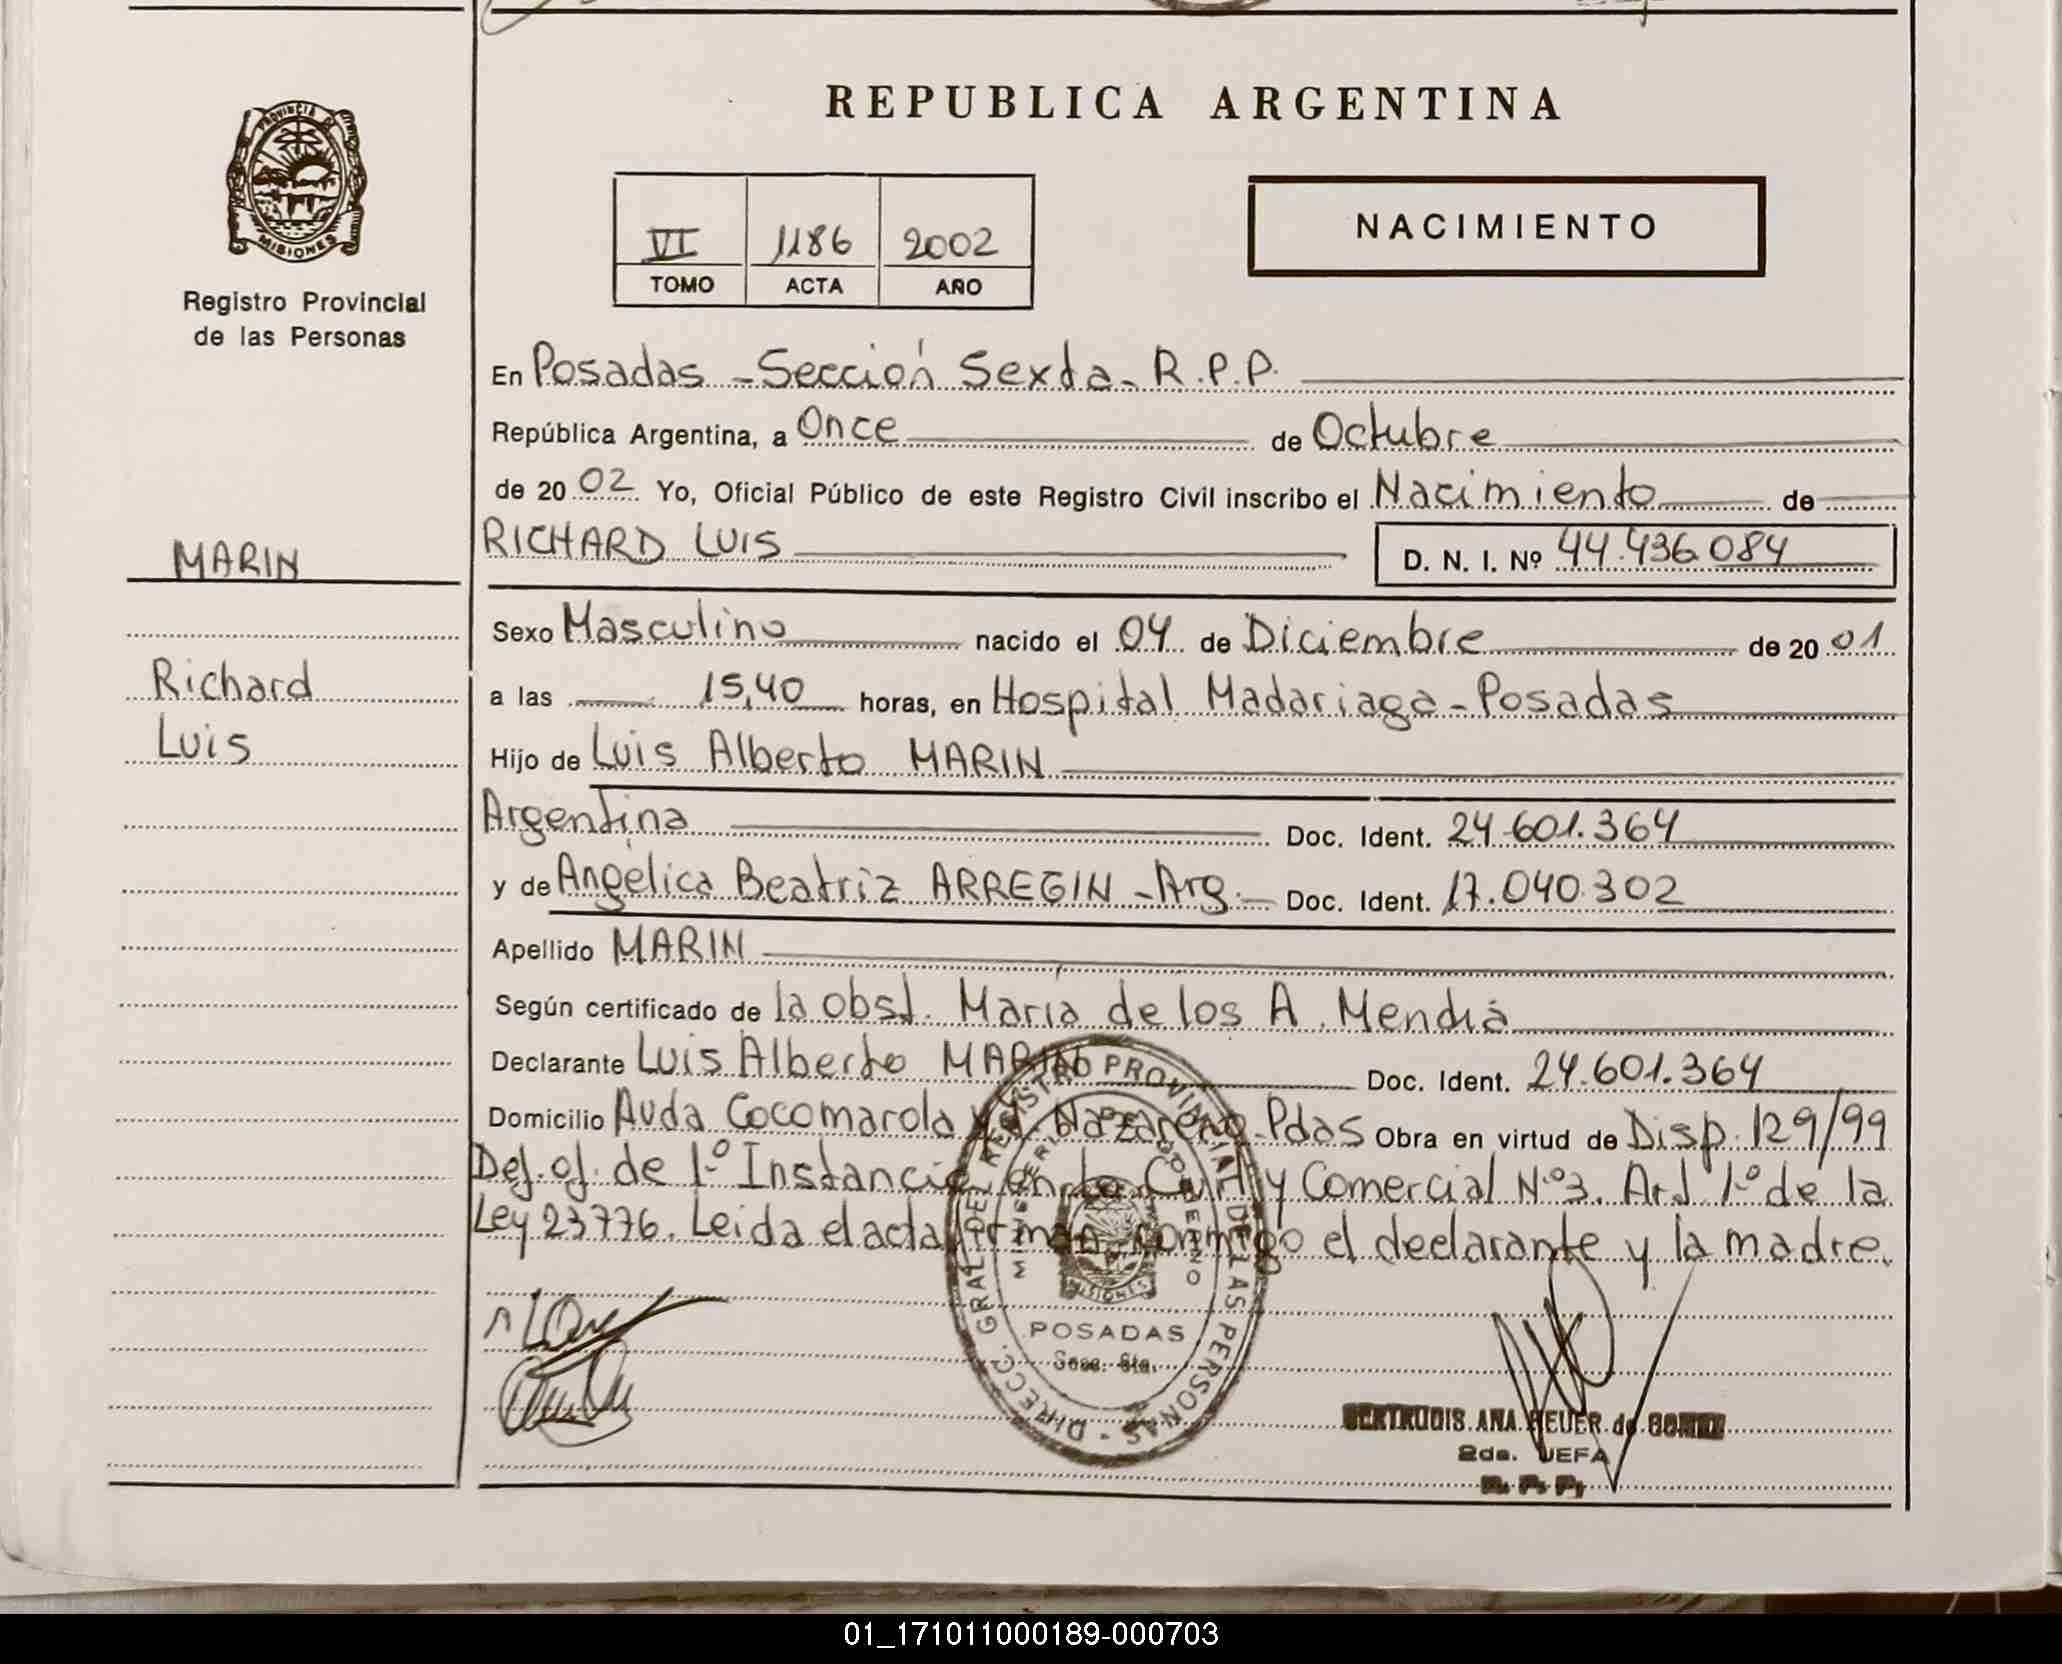 REPUBLICA ARGENTINA
PROVINCIA DE
MISIONES
Registro Provincial
de las Personas
VI 1186 2002
TOMO ACTA AÑO
NACIMIENTO
En Posadas - Sección Sexta - R.P.P.
República Argentina, a Once de Octubre
de 20 02 Yo, Oficial Público de este Registro Civil inscribo el Nacimiento de
MARIN
RICHARD LUIS D. N. I. Nº 44.436.084
Sexo Masculino nacido el 04 de Diciembre de 20 01
Richard
Luis
a las 15,40 horas, en Hospital Madariaga - Posadas
Hijo de Luis Alberto MARIN
Argentina Doc. Ident. 24.601.364
y de Angélica Beatriz ARREGIN - Arg. Doc. Ident. 17.040.302
Apellido MARIN
Según certificado de la obst. María de los A. Mendia
Declarante Luis Alberto MARIN Doc. Ident. 24.601.364
Domicilio Avda Cocomarola y Nazareno - Pdas Obra en virtud de Disp. 129/99
Def. of. de 1º Instancia en lo Civil y Comercial Nº 3. Art 1º de la
Ley 23776. Leida el acta firman conmigo el declarante y la madre.
DIRECC. GRAL DEL REGISTRO PROVINCIAL DE LAS PERSONAS
MINISTERIO DE GOBIERNO
MISIONES
POSADAS
Secc. 6ta.
GERTRUDIS ANA HEUER de GOMEZ
2da. JEFA
R. P. P.
01_171011000189-000703